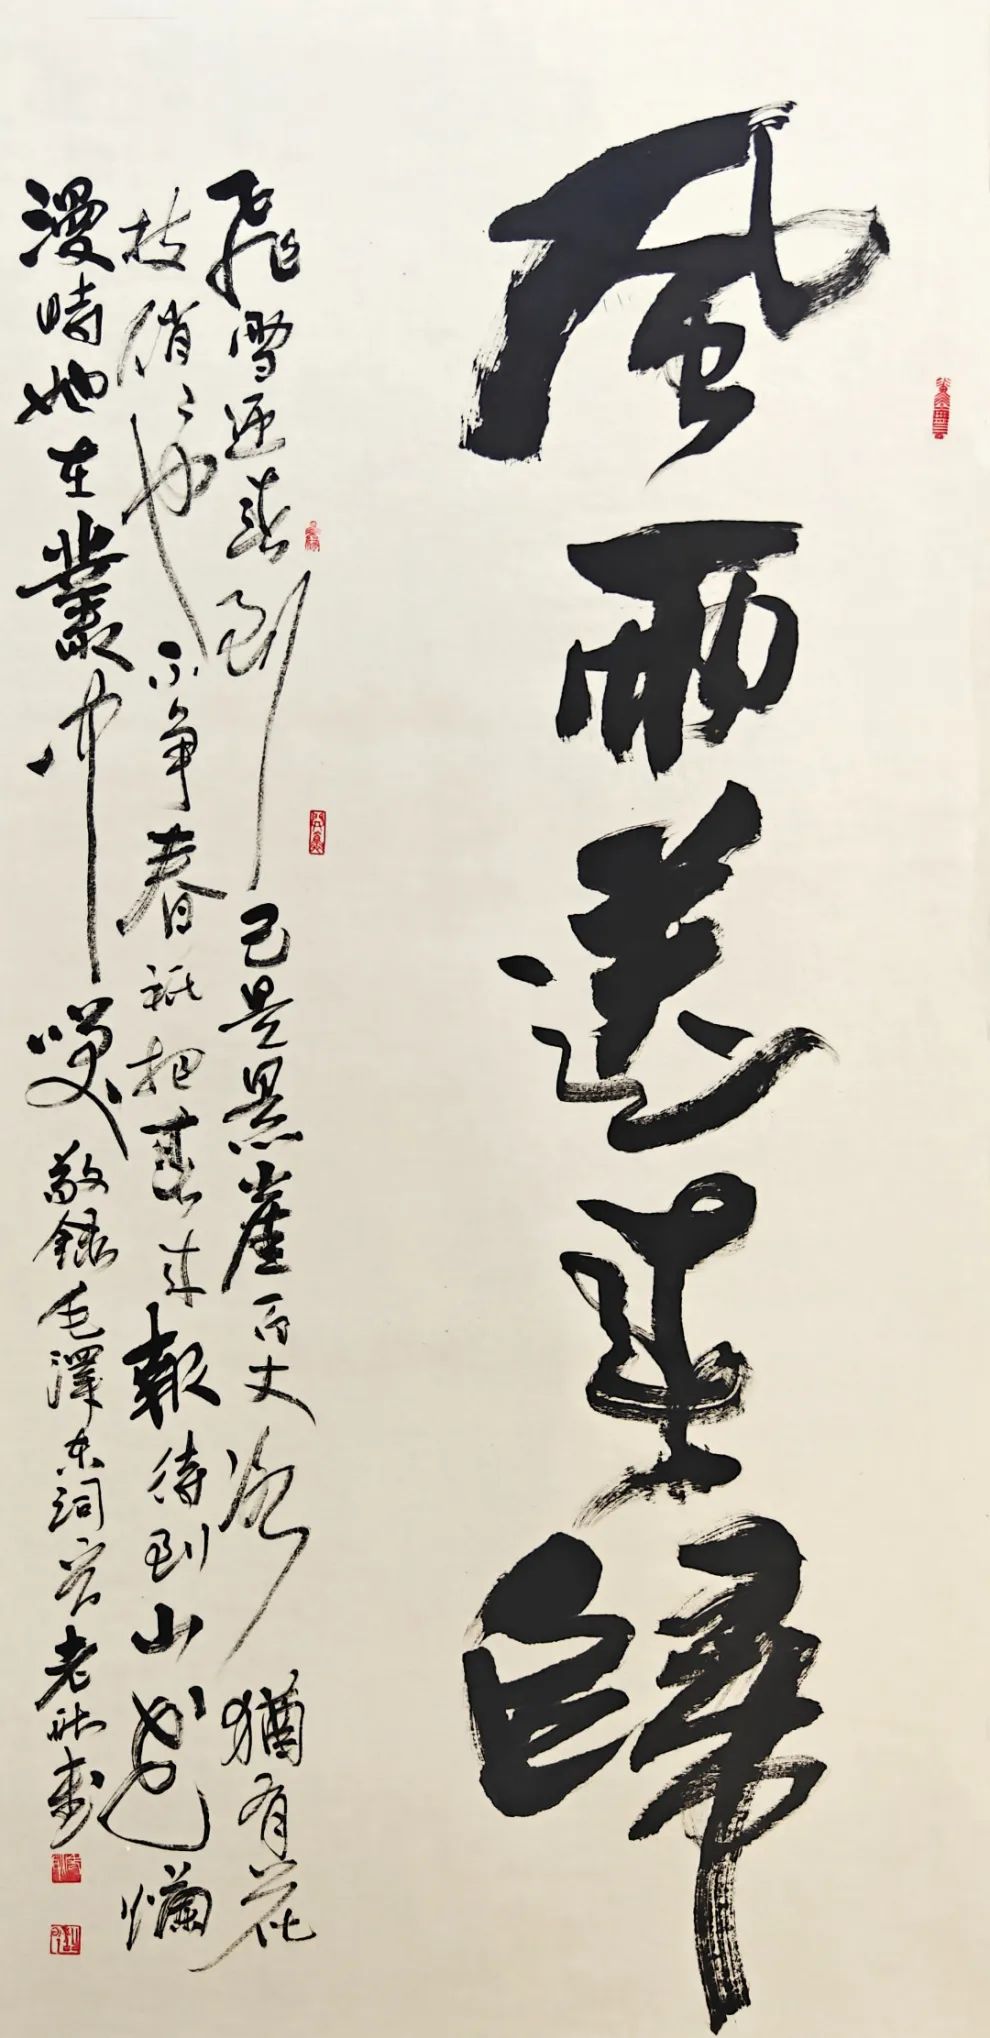 風雨送春歸
飛雪迎春到已是懸崖百丈冰猶有花
枝俏俏也不争春祗把春来報待到山花爛
漫時她在叢中笑敬録毛澤东詞